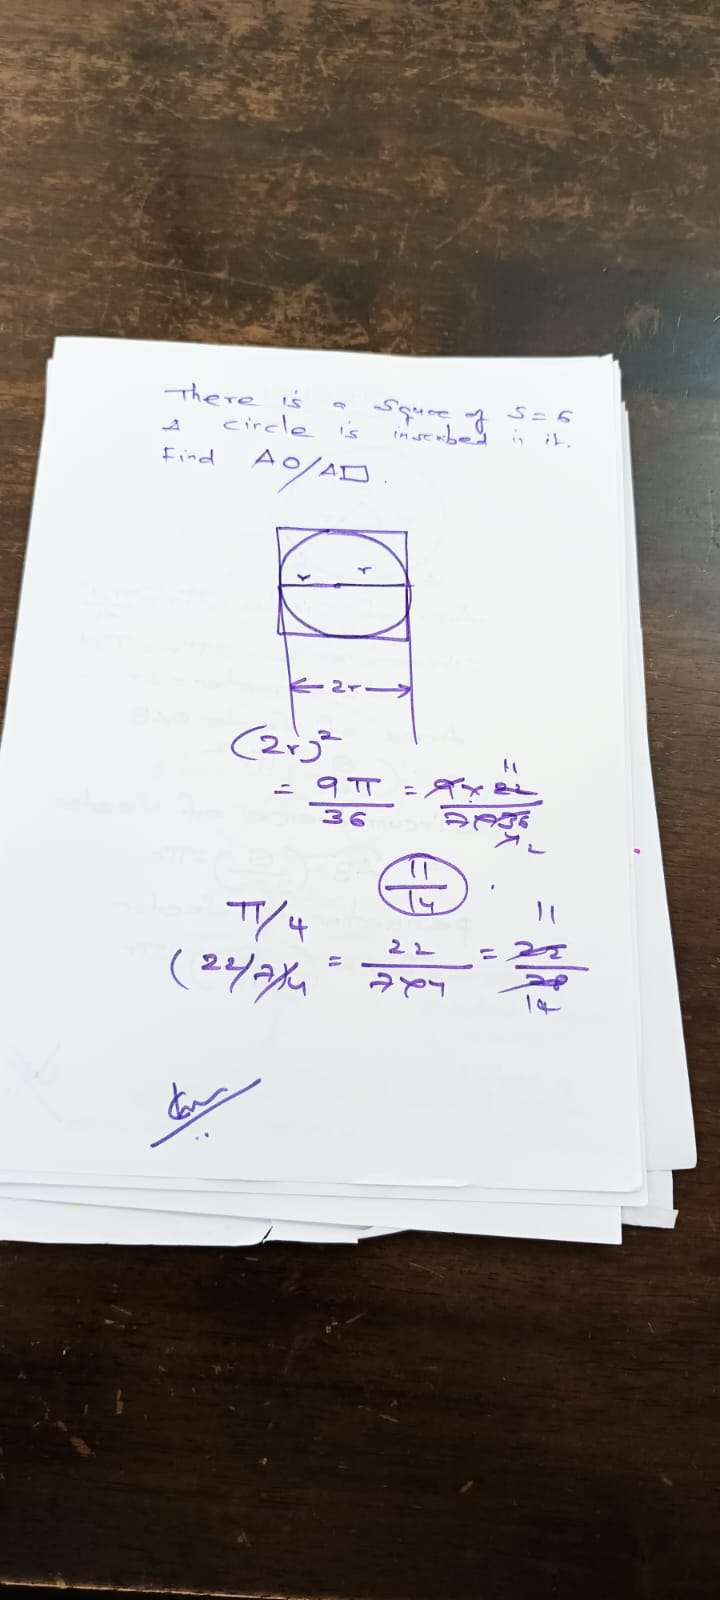 There is a Squre of S=6
A circle is inscribed in it.
Find A○/A□.
r r
2r
(2r)²
= 9π/36 = 9×22/7×36 11 2
11/14
π/4
(22/7)/4 = 22/7×4 = 22/28 11 14